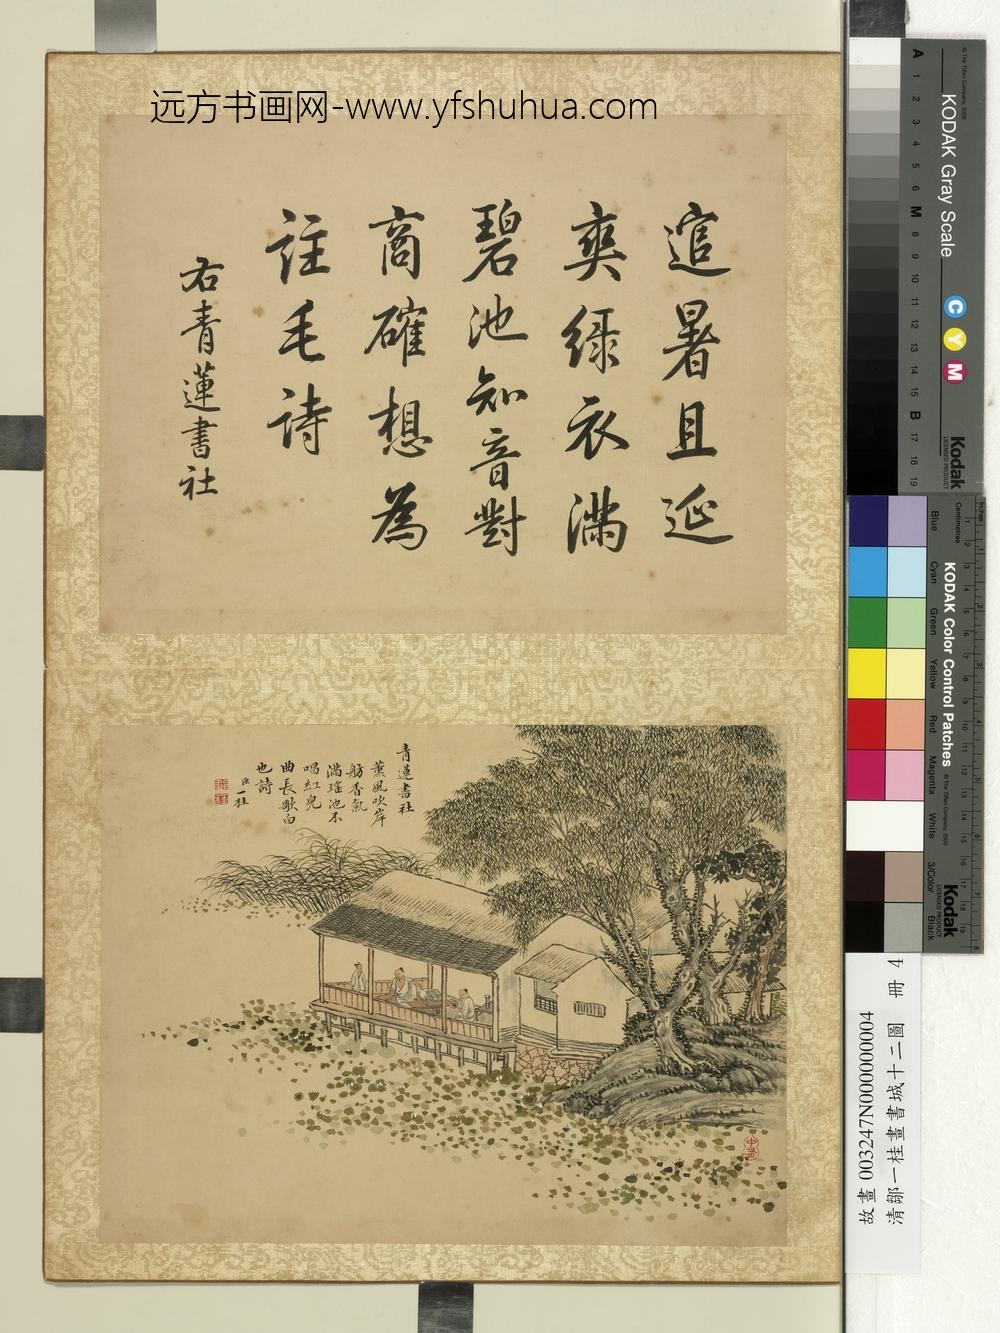 远方书画网-www.yfshuhua.com
逭暑且延
爽綠衣滿
碧池知音對
商確想為
註毛詩
右青蓮書社
青蓮書社
薰風吹岸
舫香氣
滿瑤池不
唱紅兒
曲長歌白
也詩
臣一桂
KODAK Gray Scale
© The Tiffen Company, 2000
A 1 2 3 4 5 6 M 8 9 10 11 12 13 14 15 B 17 18 19
C Y M
Kodak
LICENSED PRODUCT
KODAK Color Control Patches
© The Tiffen Company, 2000
Inches
Centimetres
Blue
Cyan
Green
Yellow
Red
Magenta
White
3/Color
Black
Kodak
LICENSED PRODUCT
故畫 003247N000000004
清鄒一桂畫書城十二圖 冊 4